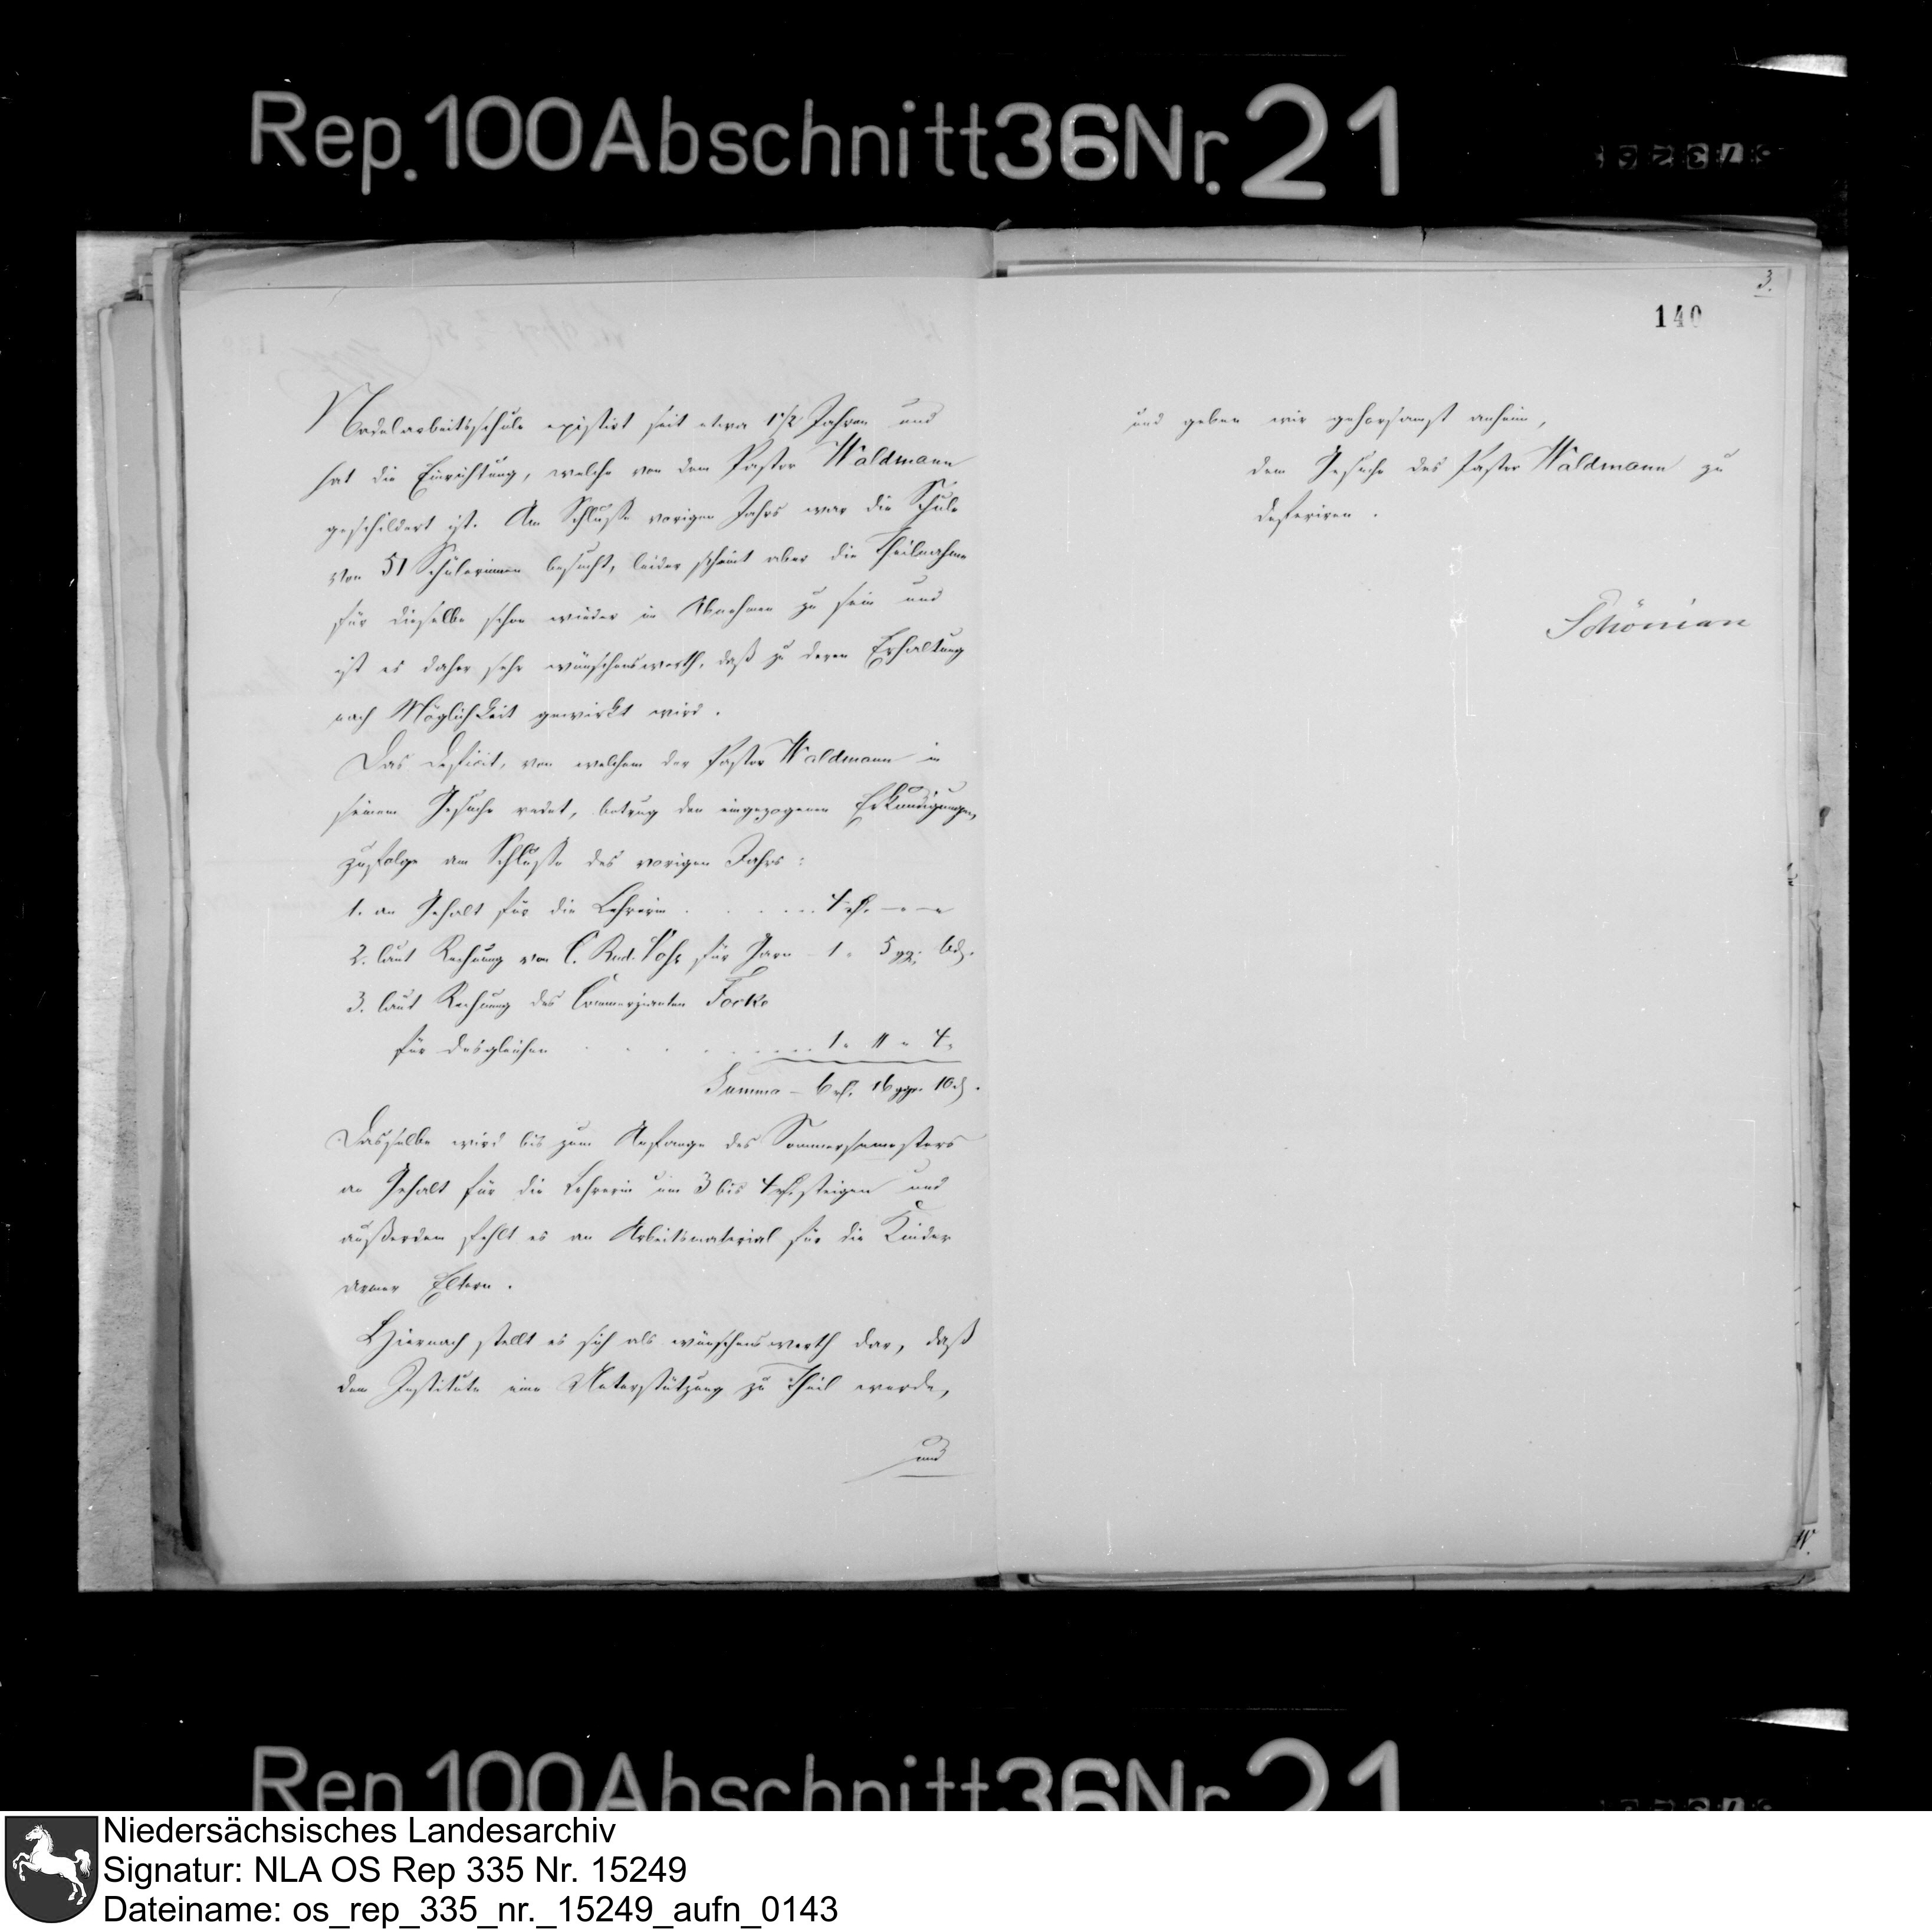 Rep. 100 Abschnitt 36 Nr. 21
3.
140
Nadelarbeitsschule existirt seit etwa 1 1/2 Jahren und
hat die Einrichtung, welche von dem Pastor Waldmann
geschildert ist. Am Schlusse vorigen Jahrs war die Schule
von 51 Schülerinnen besucht, leider scheint aber die Theilnahme
für dieselbe schon wieder im Abnehmen zu sein und
ist es daher sehr wünschenswerth, daß zu deren Erhaltung
nach Möglichkeit gewirkt wird.
Das Deficit, von welchem der Pastor Waldmann in
seinem Gesuche redet, betrug den eingezogenen Erkundigungen
zufolge am Schlusse des vorigen Jahrs:
1. an Gehalt für die Lehrerin . . . . . 4 rf. — " — "
2. laut Rechnung von C. Rud. für Garn – 1 " 5 ggr. 6 d.
3. laut Rechnung des Commerzianten Focke
für desgleichen . . . . . . . . 1 " 11 " 4 "
Summa – 6 rf. 16 ggr. 10 d.
Dasselbe wird bis zum Anfange des Sommersemesters
an Gehalt für die Lehrerin um 3 bis 4 rf. steigen und
außerdem fehlt es an Arbeitsmaterial für die Kinder
armer Eltern.
Hiernach stellt es sich als wünschenswerth dar, daß
dem Institute eine Unterstützung zu Theil werde,
und
und geben wir gehorsamst anheim,
dem Gesuche des Pastor Waldmann zu
deferiren.
Schönian
Rep. 100 Abschnitt 36 Nr. 21
Niedersächsisches Landesarchiv
Signatur: NLA OS Rep 335 Nr. 15249
Dateiname: os_rep_335_nr._15249_aufn_0143